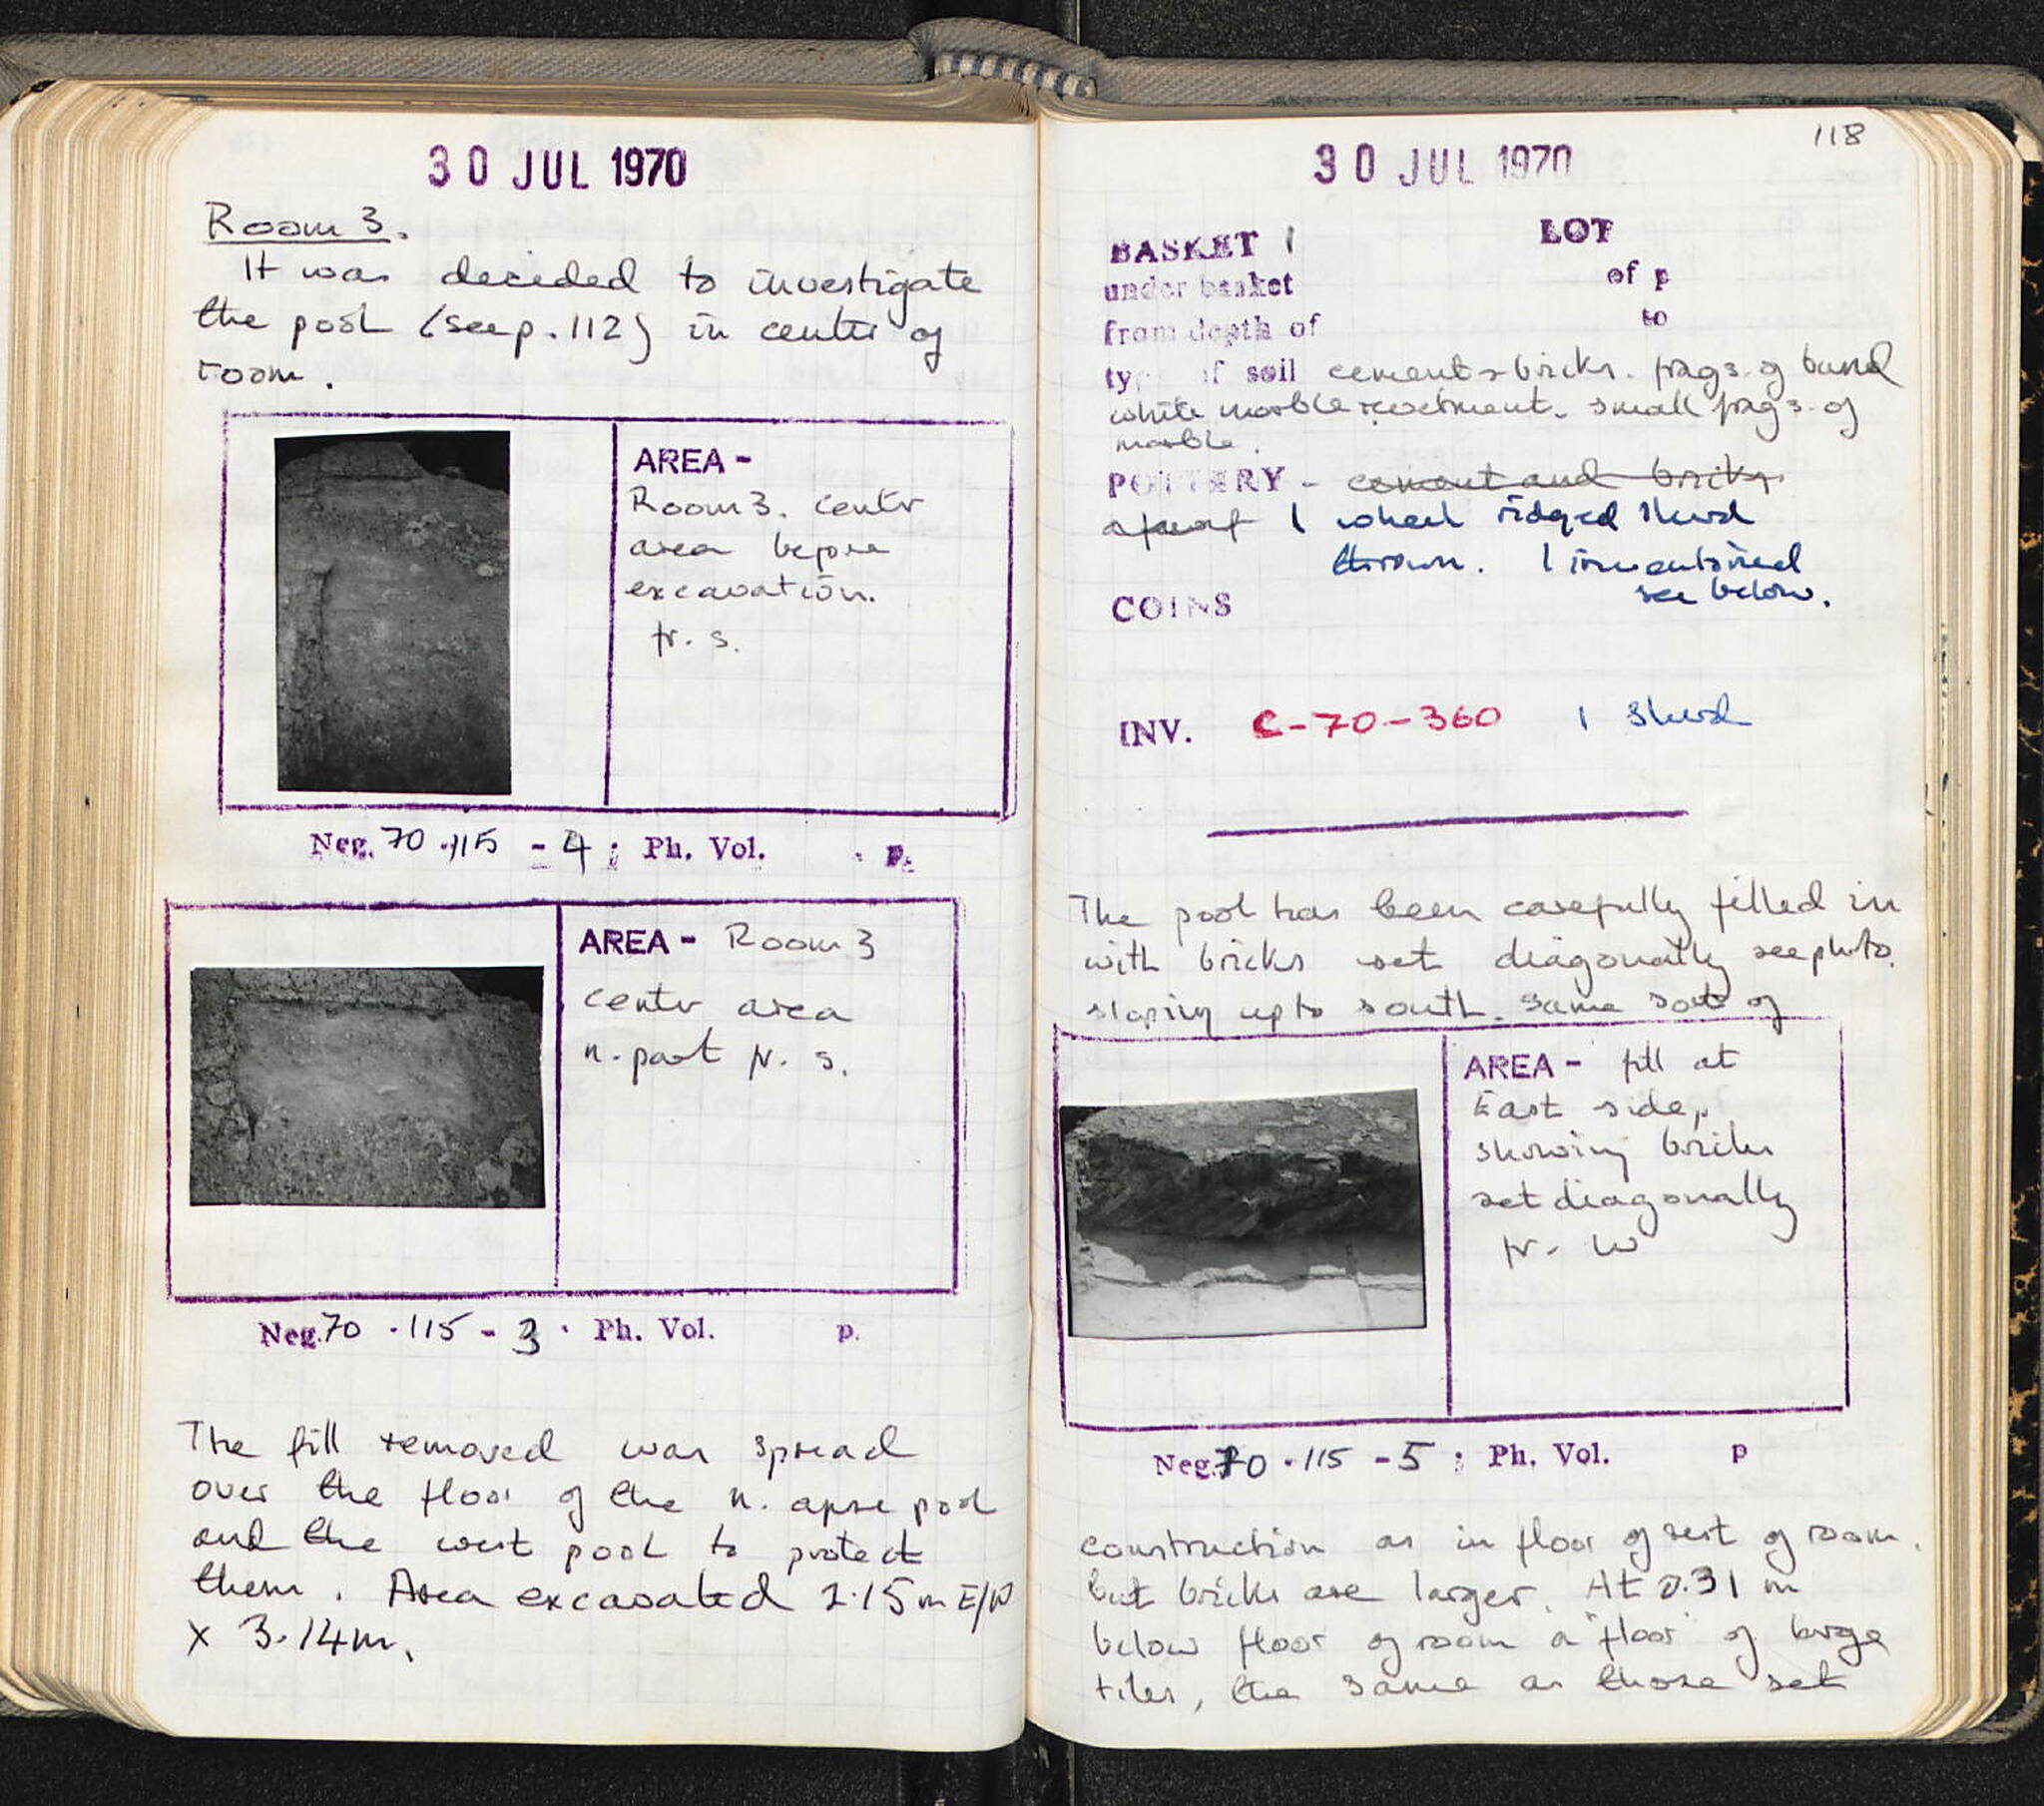 30 JUL 1970
Room 3.
It was decided to investigate
the pool (see p. 112) in center of
room.
AREA -
Room 3. center
area before
excavation.
fr. s.
Neg. 70 - 115 - 4 ; Ph. Vol. . p.
AREA - Room 3
center area
n. part fr. s.
Neg. 70 - 115 - 3 . Ph. Vol. p.
The fill removed was spread
over the floor of the n. apse pool
and the west pool to protect
them. Area excavated 2.15 m E/W
x 3.14m.
118
30 JUL 1970
BASKET 1 LOT
under basket of p
from depth of to
type of soil cement & bricks. frags. of
white marble revetment. small frags. of
marble.
POTTERY - cement and bricks
1 wheel ridged sherd
thrown. 1 inventoried
see below.
COINS
INV. C-70-360 1 sherd
The pool has been carefully filled in
with bricks set diagonally see photo.
sloping up to south. Same sort of
AREA - fill at
East side,
showing bricks
set diagonally
fr. W
Neg. 70 - 115 - 5 ; Ph. Vol. p
construction as in floor of rest of room.
but bricks are larger. At 0.31 m
below floor of room a "floor" of large
tiles, the same as those set